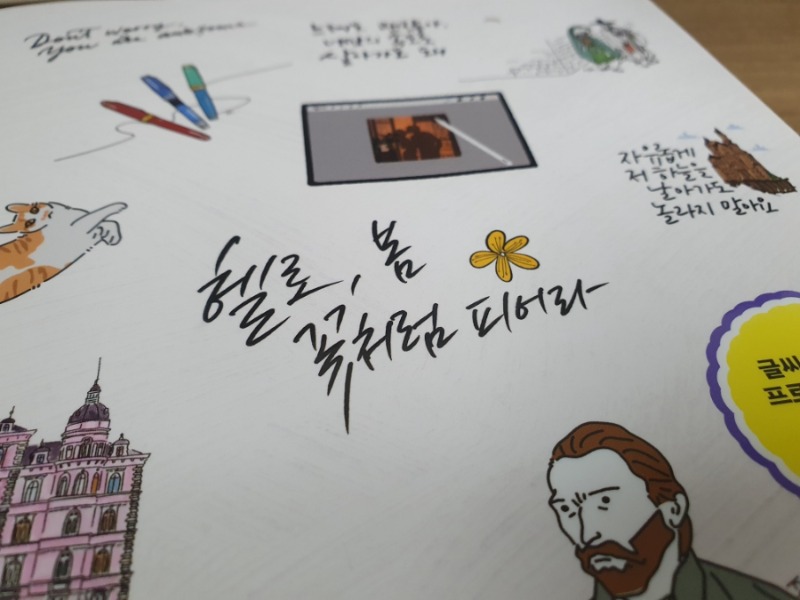 Don't worry
You are
헬로, 봄
꽃처럼 피어라
자유롭게
저 하늘을
날아가도
놀라지 말아요
글씨